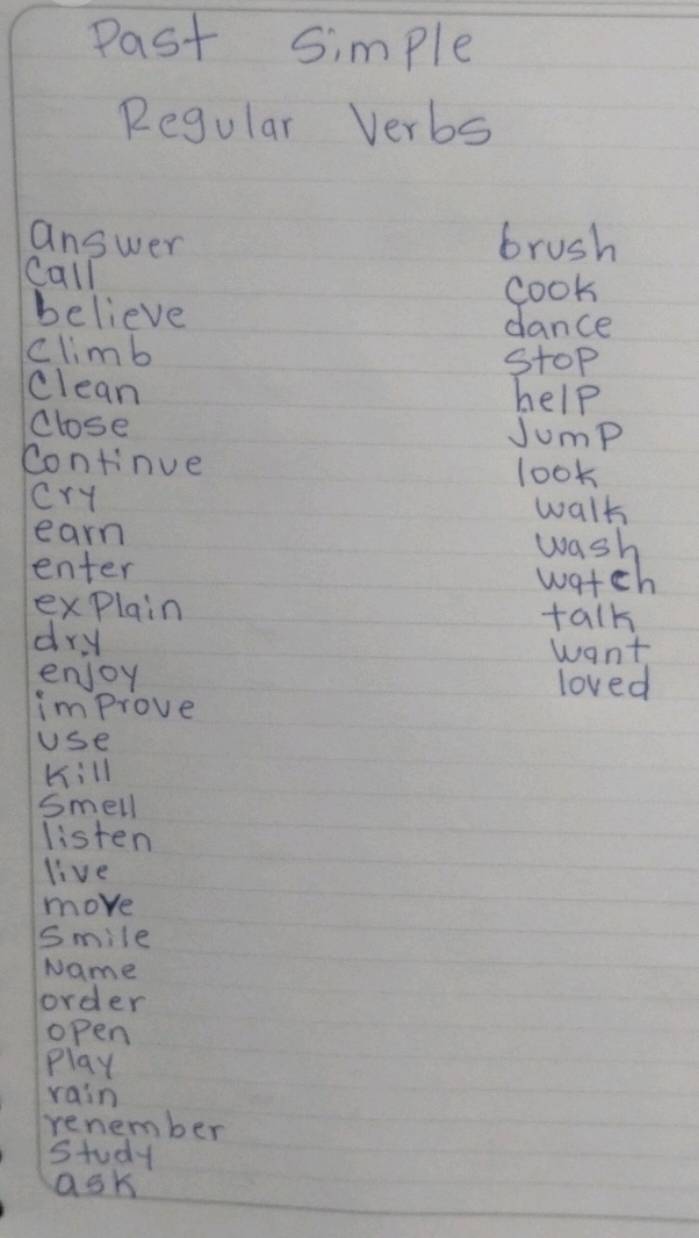 Past Simple
Regular Verbs
answer
call
believe
climb
clean
close
continue
cry
earn
enter
explain
dry
enjoy
improve
use
kill
smell
listen
live
move
smile
Name
order
open
play
rain
renember
study
ask
brush
cook
dance
stop
help
Jump
look
walk
wash
watch
talk
want
loved